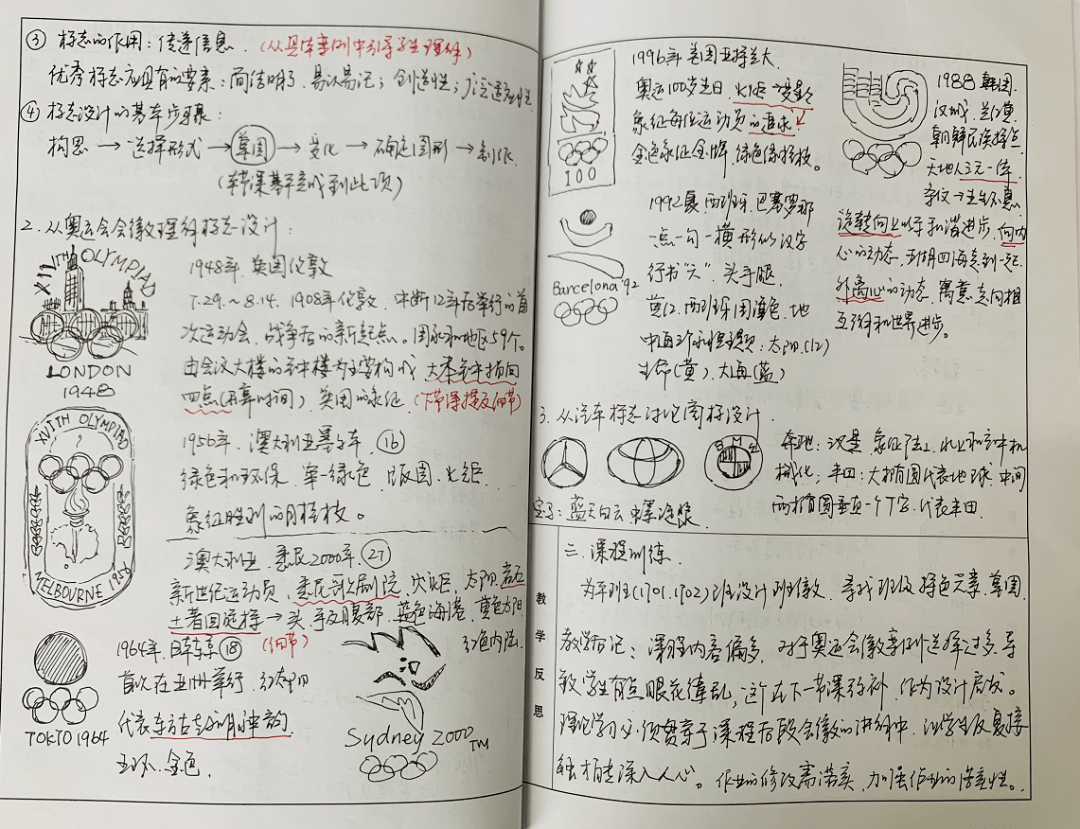 ③ 标志的作用：传递信息．（从具体案例中引导学生理解）
优秀标志应具有的要素：简洁明了、易认易记；创造性；广泛适应性
④ 标志设计的基本步骤：
构思→选择形式→草图→变化→确定图形→制作．
（本节课基本完成到此项）
2．从奥运会会徽理解标志设计：
XIVTH OLYMPIAD
LONDON
1948
1948年．英国伦敦
7.29.～8.14．1908年伦敦．中断12年后举行的首
次运动会，战争后的新起点。国家和地区59个。
由会议大楼的钟楼为主要构成 大本钟指向
四点（开幕时间） 英国的象征（下节课提及细节）
XVITH OLYMPIAD
MELBOURNE 1956
1956年．澳大利亚墨尔本 ⑯
绿色和环保．单一绿色．版图．火炬
象征胜利的月桂枝。
澳大利亚．悉尼2000年．㉗
新世纪运动员，悉尼歌剧院，火炬，太阳，岩石
土著回旋镖→头、手及腹部．蓝色海港．黄色太阳
红色内陆．
1964年．日本东京⑱（细节）
首次在亚洲举行．红太阳
代表东方古老文明神韵
五环．金色．
TOKYO 1964
Sydney 2000 TM
100
1996年 美国亚特兰大
奥运100岁生日．火炬→变星
象征每位运动员的追求
金色象征金牌，绿色像桂枝。
Barcelona '92
1992夏．西班牙．巴塞罗那
一点一勾一横形似汉字
行书"六"．头手腿
黄红．西班牙国旗色．地
中海三个永恒主题：太阳（红）
生命（黄）．大海（蓝）
1988 韩国．
汉城．
朝鲜民族特点
天地人三元一体
旋转向上似乎和谐进步．向内
心的动态，五湖四海走到一起
外离心的动态，寓意走向相
互谅和世界进步。
3．从汽车标志讨论商标设计．
BMW
奔驰：汉堡 象征陆上、水上和空中机
械化；丰田：大椭圆代表地球．中间
两椭圆垂直一个T字．代表丰田．
宝马：蓝天白云中螺旋桨
教学反思
二．课程训练．
为平班（1701．1702）班设计班徽．寻找班级特色元素．草图．
教学后记：课程内容偏多．对于奥运会徽案例选择过多．导
致学生有点眼花缭乱，这个在下一节课弥补．作为设计启发。
理论学习必须贯穿于课程后段会徽的讲解中．让学生反复接
触才能深入人心。作业的修改需落实．加强作业的落实性。